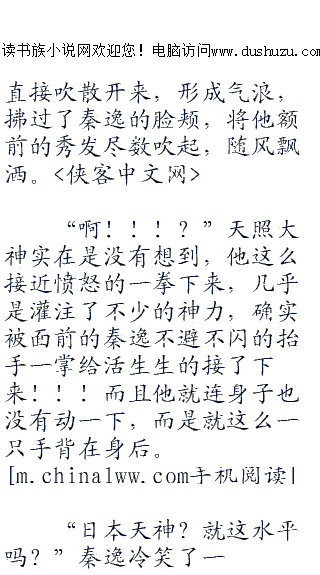 读书族小说网欢迎您！电脑访问www.dushuzu.com
直接吹散开来，形成气浪，
拂过了秦逸的脸颊，将他额
前的秀发尽数吹起，随风飘
洒。<侠客中文网>
“啊！！！？”天照大
神实在是没有想到，他这么
接近愤怒的一拳下来，几乎
是灌注了不少的神力，确实
被面前的秦逸不避不闪的抬
手一掌给活生生的接了下
来！！！而且他就连身子也
没有动一下，而是就这么一
只手背在身后。
[m.chinalww.com手机阅读|
“日本天神？就这水平
吗？”秦逸冷笑了一